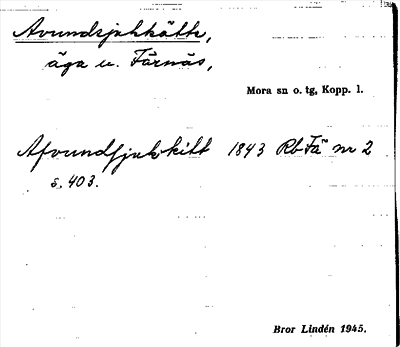 Avundsjukkätt,
äga u. Färnäs,
Mora sn o. tg, Kopp. l.
Afvundsjukkitt 1843 Rb Fä nr 2
s. 403.
Bror Lindén 1945.